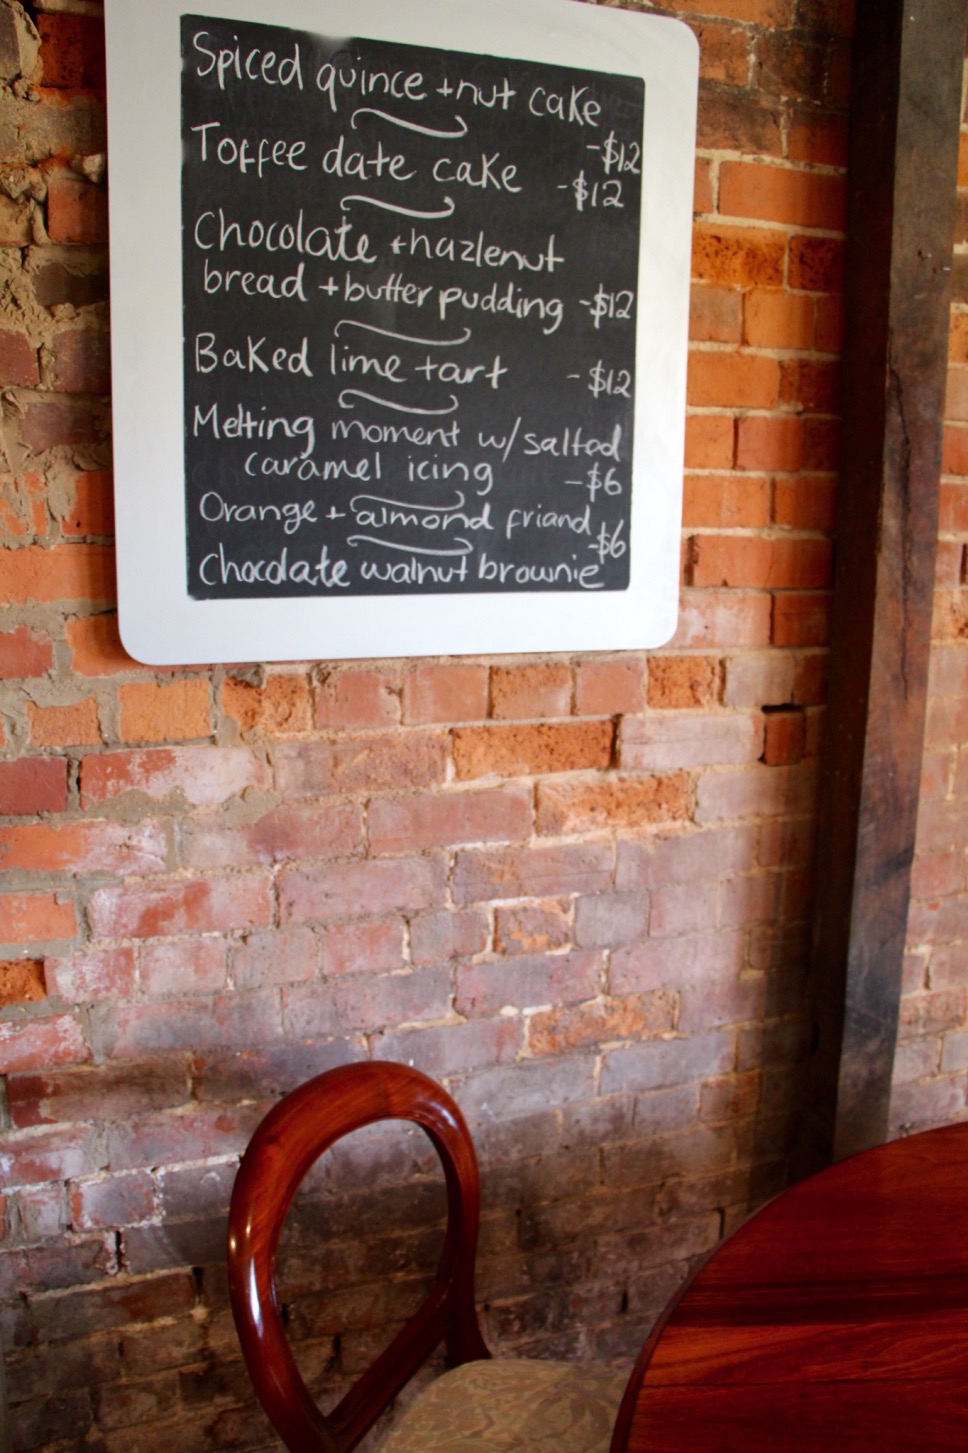 Spiced quince + nut cake
-$12
Toffee date cake -$12
Chocolate + hazlenut
bread + butter pudding -$12
Baked lime tart -$12
Melting moment w/ salted
caramel icing -$6
Orange + almond friand
-$6
Chocolate walnut brownie